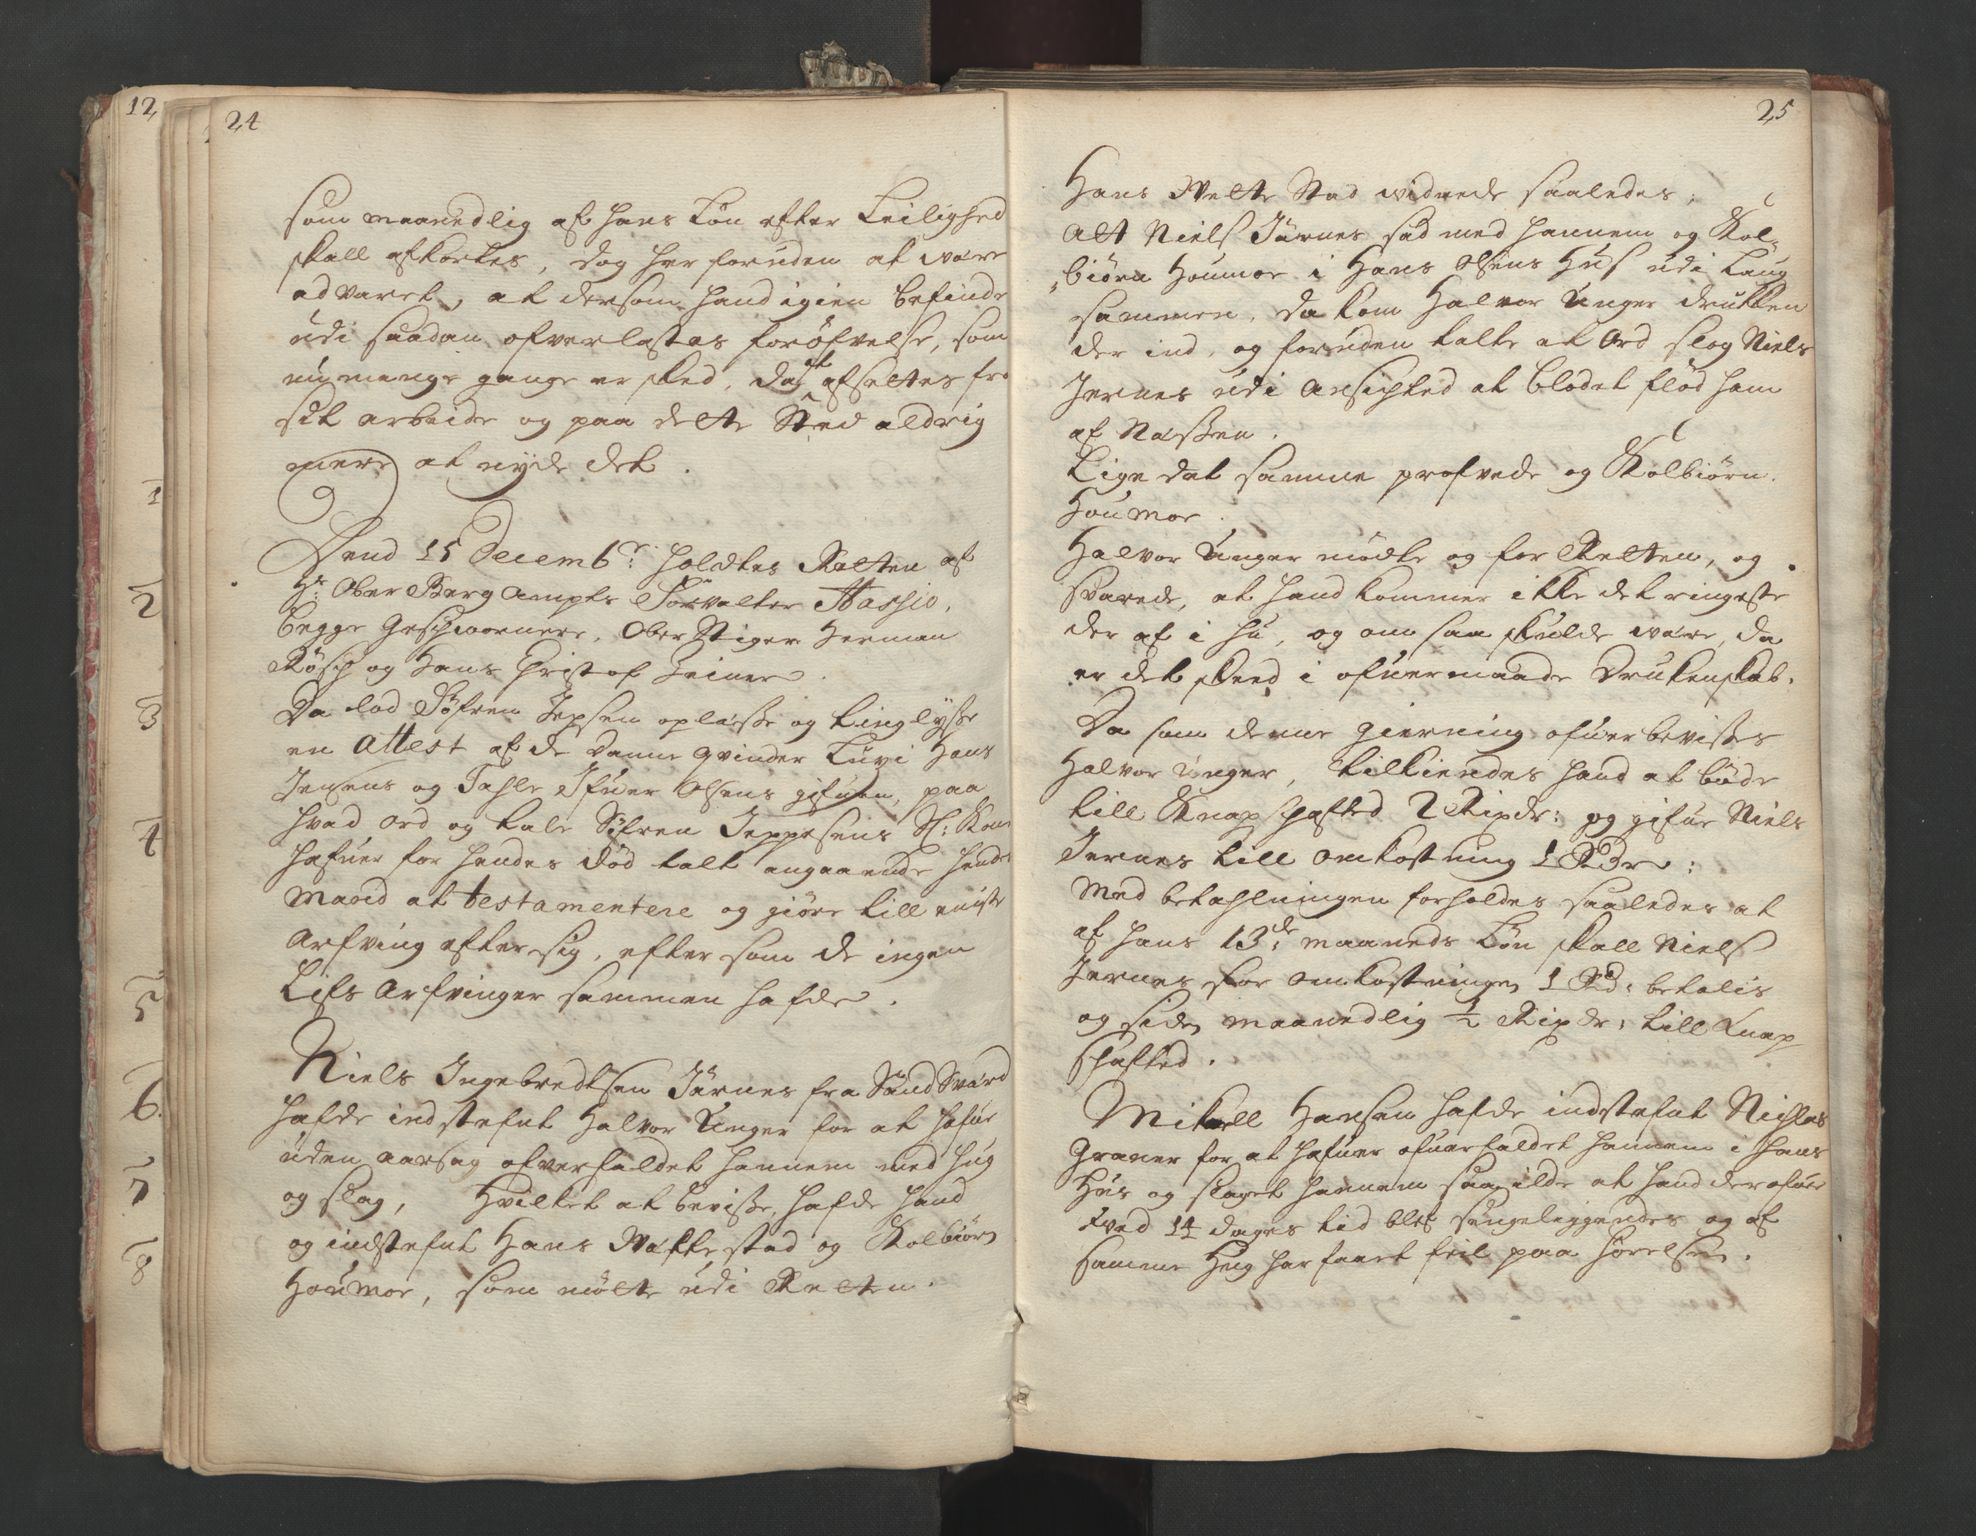 12
1
2
3
4
5
6
7
8
24
som maanedlig af hans Løn efter Leilighed
skall afkortes, dog her foruden at være
advaret, at dersom hand igien befindes
udi saadan ofverlastes forøfvelse, som
nu mange gange er sked, da at afsettes fra
sit arbeide og paa dette Sted aldrig
mere at nyde det.
Dend 15 Decembr: holdtes Retten af
Hr. Ober Berg Ampts Forvalter Stassio,
begge Geschwornere, Ober Stiger Herman
Rösch og Hans Christof Teiner.
Da lod Søfren Jepsen oplæsse og tinglysse
en Attest af de Danne qvinder Luvi Hans
Jensens og Tahle Ifuer Olsens gifuen, paa
hvad ord og tale Søfren Jeppesens Sl: Kone
hafuer for hendes død talt angaaende hendes
Mand at testamentere og giøre till eniste
Arfving efter sig, eftersom de ingen
Lifs Arfvinger sammen hafde.
Niels Ingebredtsen Järnes fra Sandsværd
hafde indstefnt Halvor Unger for at hafue
uden aarsag ofverfaldet hannem med hug
og slag, Hvilket at bevisse, hafde hand
og indstefnt Hans Wættestad og Kolbiørn
Houmoe, som mötte udi Retten.
25
Hans Wette Stad vidnede saaledes,
Att Niels Järnes sad med hannem og Kol-
biørn Houmoe i Hans Olsens Hus udi Laug
sammen, da kom Halvor Unger drukken
der ind, og foruden talte at Ord slog Niels
Jernes udi Ansichted at blodet flød ham
af Næssen.
Lige det samme profvede og Kolbiørn
Houmoe.
Halvor Unger mödte og for Retten, og
svarede, at hand kommer ikke det ringeste
der af i hu, og om saa skulde være, da
er det skeed i ofuermaade Drukenskab.
Da som denne gierning ofuerbevistes
Halvor Unger, tilkiendes hand at bøde
till Knapschafted 2 Ripdr: og gifue Niels
Jernes till omkostning 1 Rdr:
Med betahlningen forholdes saaledes at
af hans 13de: maaneds Løn skall Niels
Jernes for omkostningen 1 Rd: betalis
og siden maanedlig ½ Ripdr: till Knap
schafted.
Mikell Hansen hafde indstefnt Nichlas
Graner for at hafuer ofuerfaldet hannem i hans
Hus og slaget hannem saa ilde at hand derofuer
ved 14 dages tid blef sengeliggendes og af
samme Hug har faaet feil paa hørelsen.